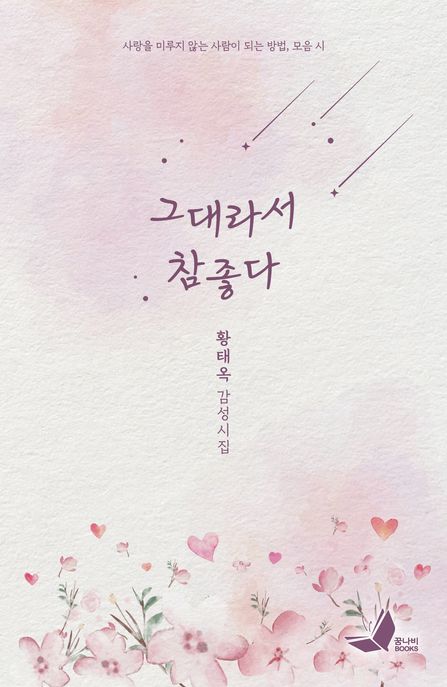 사랑을 미루지 않는 사람이 되는 방법, 모음 시
그대라서
참좋다
황태옥 감성시집
꿈나비
BOOKS